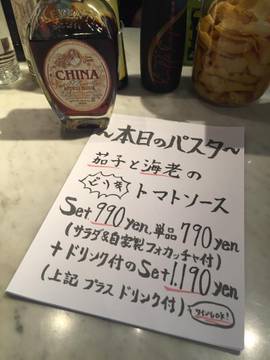 CHINA
~本日のパスタ~
茄子と海老の
ピリ辛 トマトソース
Set 990yen, 単品 790yen
(サラダ&自家製フォカッチャ付)
+ドリンク付のSet 1,190yen
(上記 プラス ドリンク付)